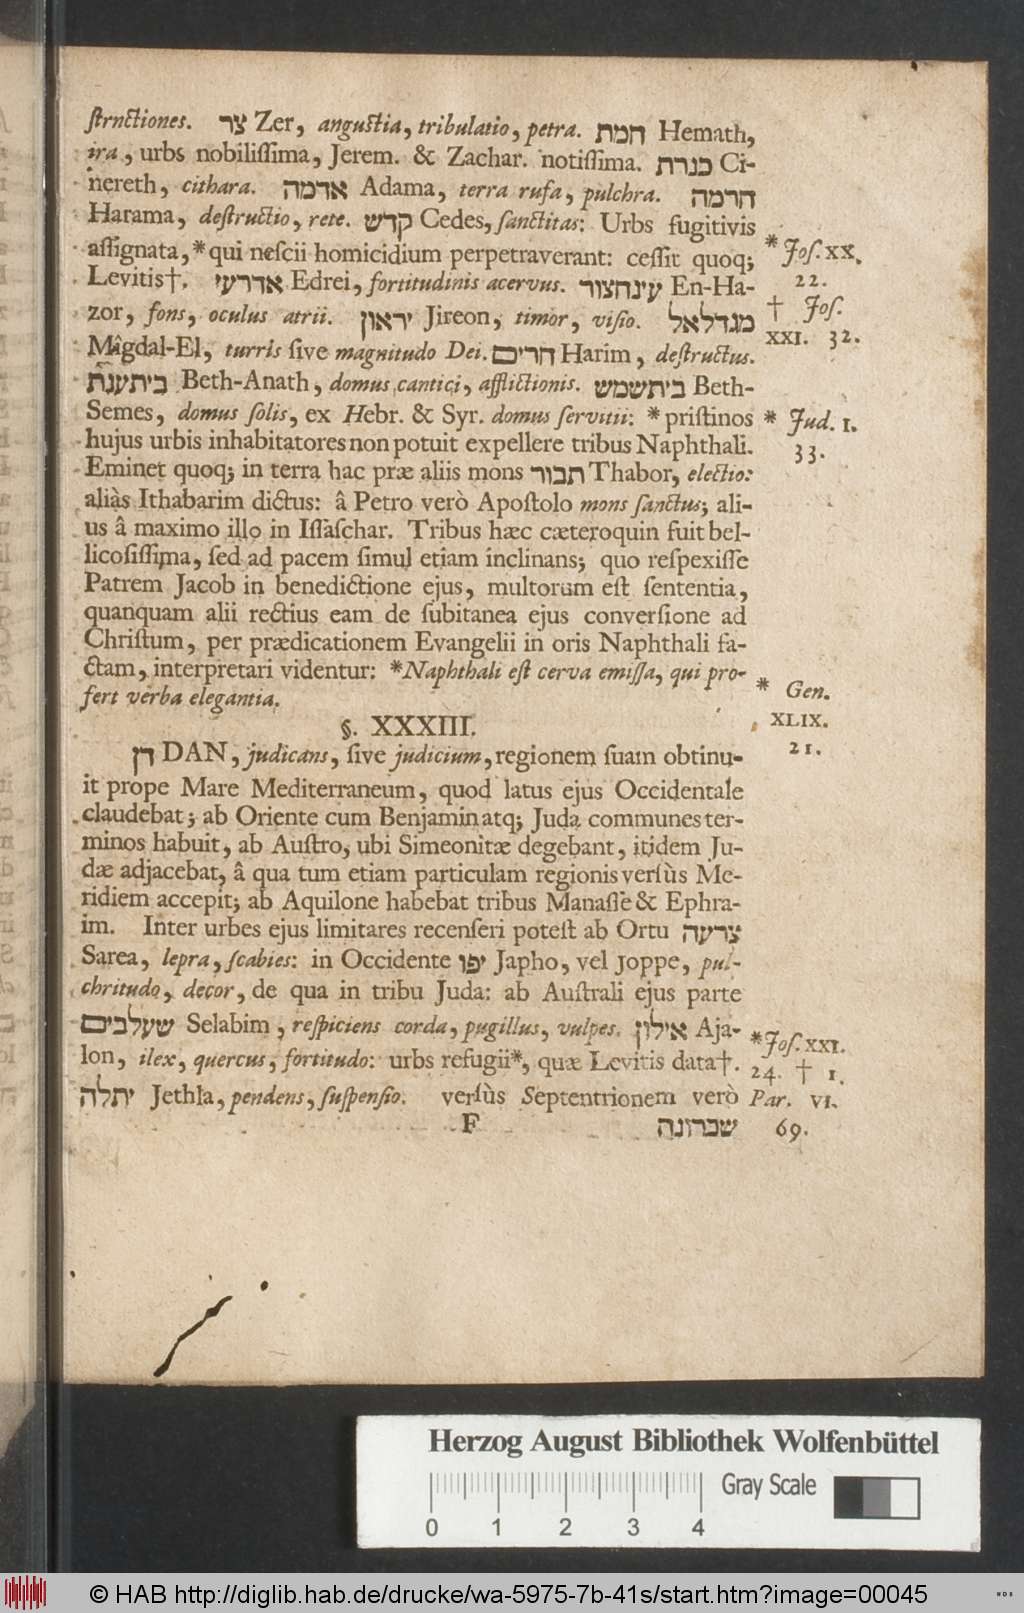 ſtrnctiones. צר Zer, anguſtia, tribulatio, petra. חמת Hemath,
ira, urbs nobiliſſima, Jerem. & Zachar. notiſſima. כנרת Ci-
nereth, cithara. אדמה Adama, terra rufa, pulchra. הרמה
Harama, deſtructio, rete. קדש Cedes, ſanctitas: Urbs fugitivis
aſſignata, * qui neſcii homicidium perpetraverant: ceſſit quoq;
Levitis†. אדרעי Edrei, fortitudinis acervus. עינחצור En-Ha-
zor, fons, oculus atrii. יראון Jireon, timor, viſio. מגדלאל
Migdal-El, turris ſive magnitudo Dei. חרים Harim, deſtructus.
ביתענת Beth-Anath, domus cantici, afflictionis. ביתשמש Beth-
Semes, domus ſolis, ex Hebr. & Syr. domus ſervitii: * priſtinos
hujus urbis inhabitatores non potuit expellere tribus Naphthali.
Eminet quoq; in terra hac præ aliis mons תבור Thabor, electio:
aliàs Ithabarim dictus: â Petro verò Apoſtolo mons ſanctus; ali-
us â maximo illo in Iſſaſchar. Tribus hæc cæteroquin fuit bel-
licoſiſſima, ſed ad pacem ſimul etiam inclinans; quo reſpexiſſe
Patrem Jacob in benedictione ejus, multorum eſt ſententia,
quanquam alii rectius eam de ſubitanea ejus converſione ad
Chriſtum, per prædicationem Evangelii in oris Naphthali fa-
ctam, interpretari videntur: * Naphthali eſt cerva emiſſa, qui pro-
fert verba elegantia.
* Joſ. XX.
22.
† Joſ.
XXI. 32.
* Jud. 1.
33.
* Gen.
XLIX.
21.
§. XXXIII.
דן DAN, judicans, ſive judicium, regionem ſuam obtinu-
it prope Mare Mediterraneum, quod latus ejus Occidentale
claudebat; ab Oriente cum Benjamin atq; Juda communes ter-
minos habuit, ab Auſtro, ubi Simeonitæ degebant, itidem Ju-
dæ adjacebat, â qua tum etiam particulam regionis verſùs Me-
ridiem accepit; ab Aquilone habebat tribus Manaſſe & Ephra-
im. Inter urbes ejus limitares recenſeri poteſt ab Ortu צרעה
Sarea, lepra, ſcabies: in Occidente יפו Japho, vel Joppe, pul-
chritudo, decor, de qua in tribu Juda: ab Auſtrali ejus parte
שעלבים Selabim, reſpiciens corda, pugillus, vulpes. אילון Aja-
lon, ilex, quercus, fortitudo: urbs refugii*, quæ Levitis data†.
יתלה Jethla, pendens, ſuſpenſio. verſùs Septentrionem verò
F שברונה
* Joſ. XXI.
24. † 1.
Par. VI.
69.
Herzog August Bibliothek Wolfenbüttel
Gray Scale
0 1 2 3 4
© HAB http://diglib.hab.de/drucke/wa-5975-7b-41s/start.htm?image=00045